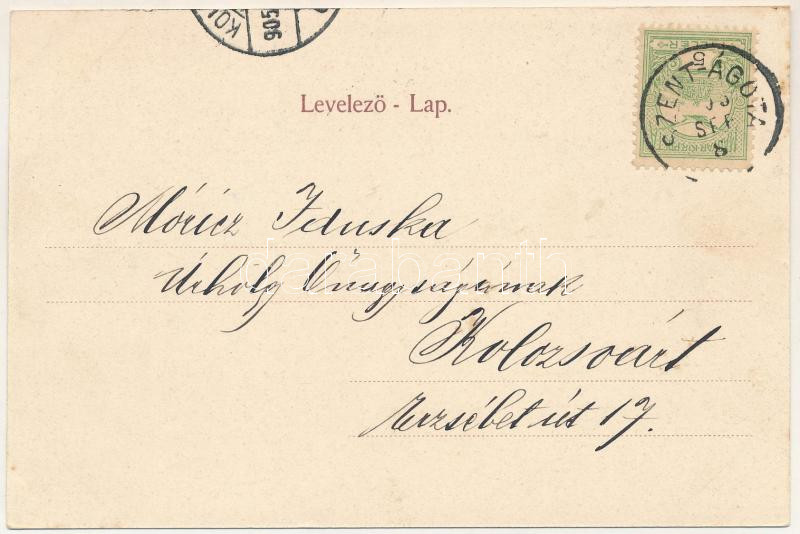 KOL
905
Levelező - Lap.
SZENT-ÁGOTA
SEP
8
5
Móricz Iduska
Úrhölg Önagyságának
Kolozsvárt
Erzsébet út 17.
darabanth